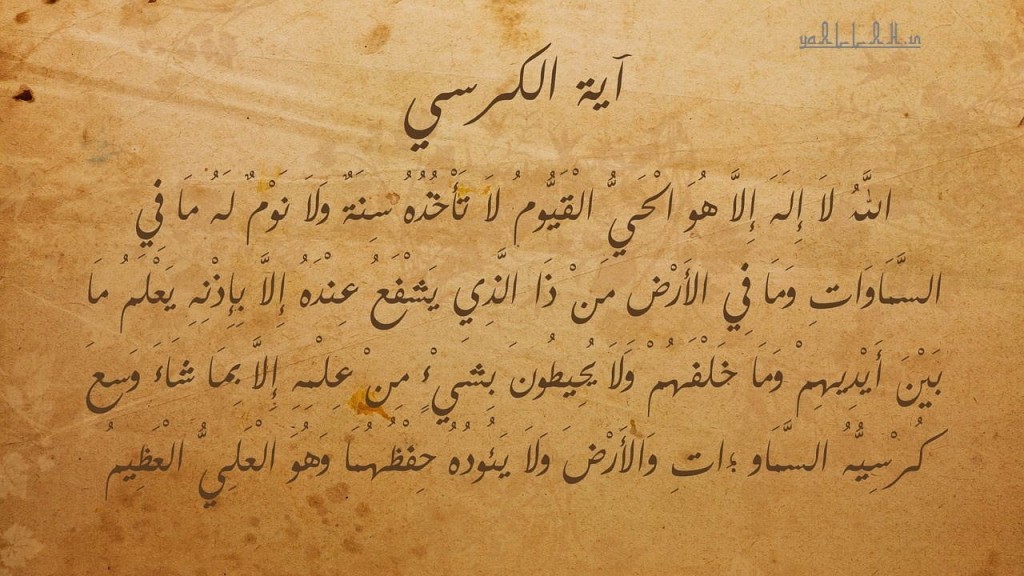 yaALLAH.in
آية الكرسي
اللَّهُ لَا إِلَهَ إِلَّا هُوَ الْحَيُّ الْقَيُّومُ لَا تَأْخُذُهُ سِنَةٌ وَلَا نَوْمٌ لَهُ مَا فِي
السَّمَاوَاتِ وَمَا فِي الأَرْضِ مَن ْ ذَا الَّذِي يَشْفَعُ عِنْدَهُ إِلَّا بِإِذْنِهِ يَعْلَمُ مَا
بَيْنَ أَيْدِيهِمْ وَمَا خَلْفَهُمْ وَلَا يُحِيطُونَ بِشَيْءٍ مِنْ عِلْمِهِ إِلَّا بِمَا شَاءَ وَسِعَ
كُرْسِيُّهُ السَّمَاو ؛اتِ وَالأَرْضَ وَلَا يَئُودُهُ حِفْظُهُمَا وَهُوَ الْعَلِيُّ الْعَظِيمُ